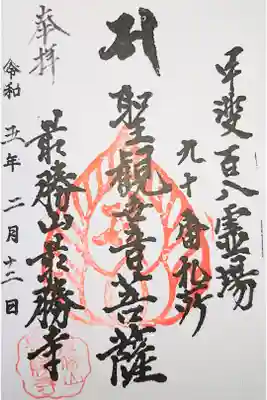 甲斐百八霊場
九十番札所
聖観世音菩薩
最勝山最勝寺
奉拝
令和五年二月十二日